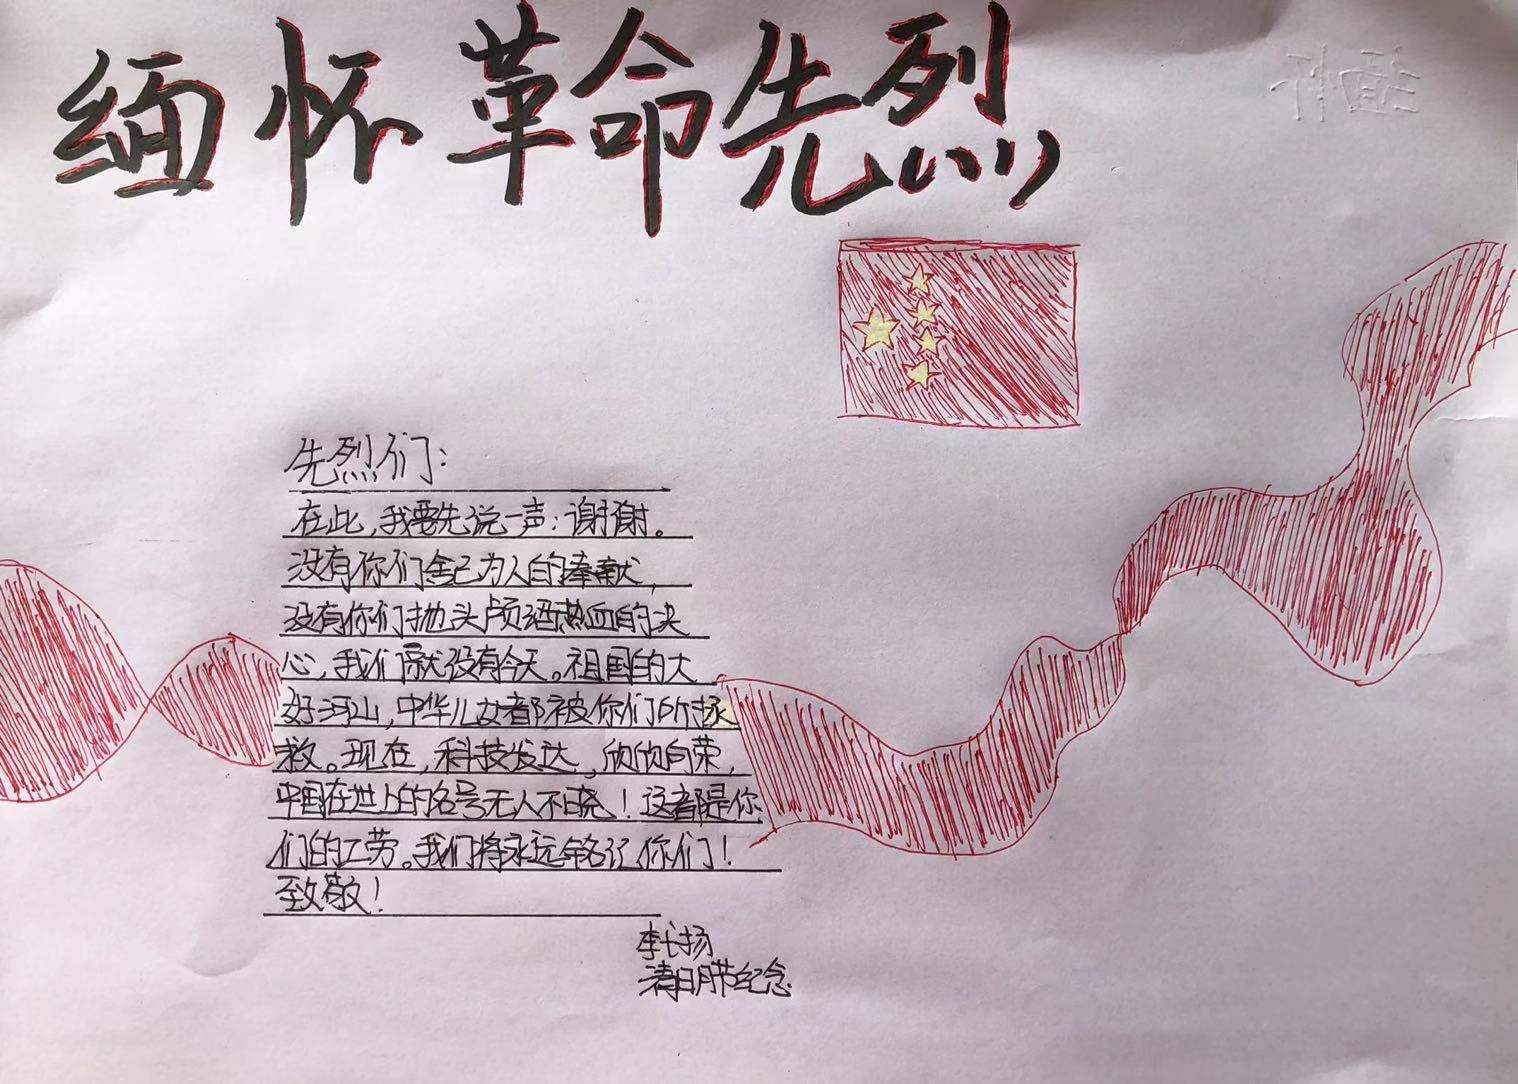 缅怀革命先烈
缅怀
先烈们：
在此，我要先说一声：谢谢。
没有你们舍己为人的奉献，
没有你们抛头颅洒热血的决
心，我们就没有今天。祖国的大
好河山，中华儿女都被你们所拯
救。现在，科技发达，欣欣向荣，
中国在世上的名号无人不晓！这都是你
们的工劳。我们将永远铭记你们！
致敬！
李长扬
清明节纪念